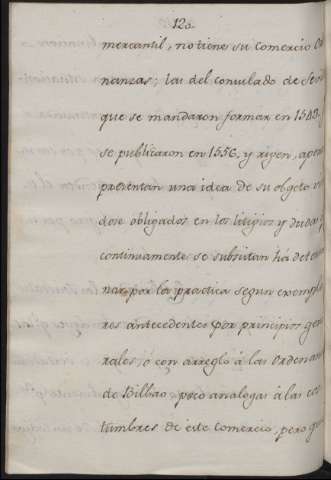 120.
mercantil, no tiene su comercio Or
nanzas; las del consulado de Sev
que se mandaron formar en 1543.
se publicaron en 1556, y rigen, apen
presentan una idea de su objeto vi
dose obligados en los litigios y dudas
continuamente se subsitan há deter
nar por la practica segun exempla
res antecedentes por principios gen
rales, ó con arreglo á las Ordenan
de Bilbao poco analogas á las cos
tumbres de este comercio, pero q